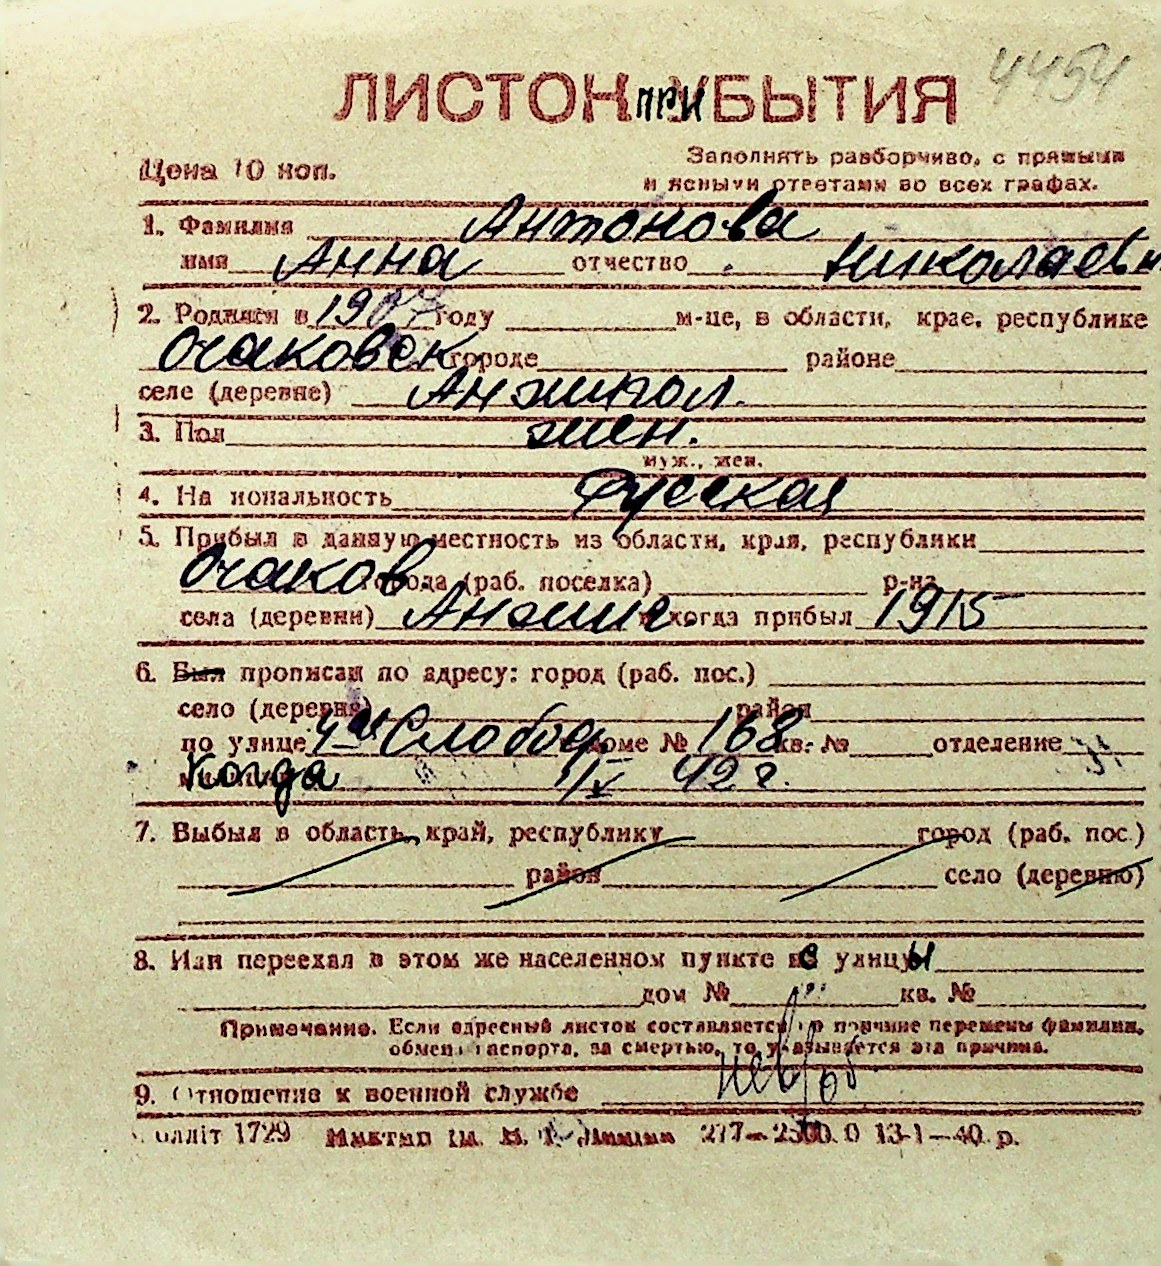 4454
ЛИСТОК при УБЫТИЯ
Цена 10 коп.
Заполнять разборчиво, с прямыми
и ясными ответами во всех графах.
1. Фамилия Антонова
имя Анна отчество Николаевн
2. Родился в 1907 году м-це, в области, крае, республике
Очаковск. городе районе
селе (деревне) Анжипол.
3. Пол жен.
муж., жен.
4. Национальность Русская
5. Прибыл в данную местность из области, края, республики
Очаков. города (раб. поселка) р-на
села (деревни) когда прибыл 1915
6. Был прописан по адресу: город (раб. пос.)
село (деревня) район
по улице 4ая Слобод. доме № 168 кв. № отделение
Когда 1/V 42 г.
7. Выбыл в область, край, республику город (раб. пос.)
район село (деревню)
8. Или переехал в этом же населенном пункте с улицы
дом № кв. №
Примечание. Если адресный листок составляется по причине перемены фамилии,
обмена паспорта, за смертью, то указывается эта причина.
9. Отношение к военной службе невоб
1729 277—2500.0 13-1—40 р.